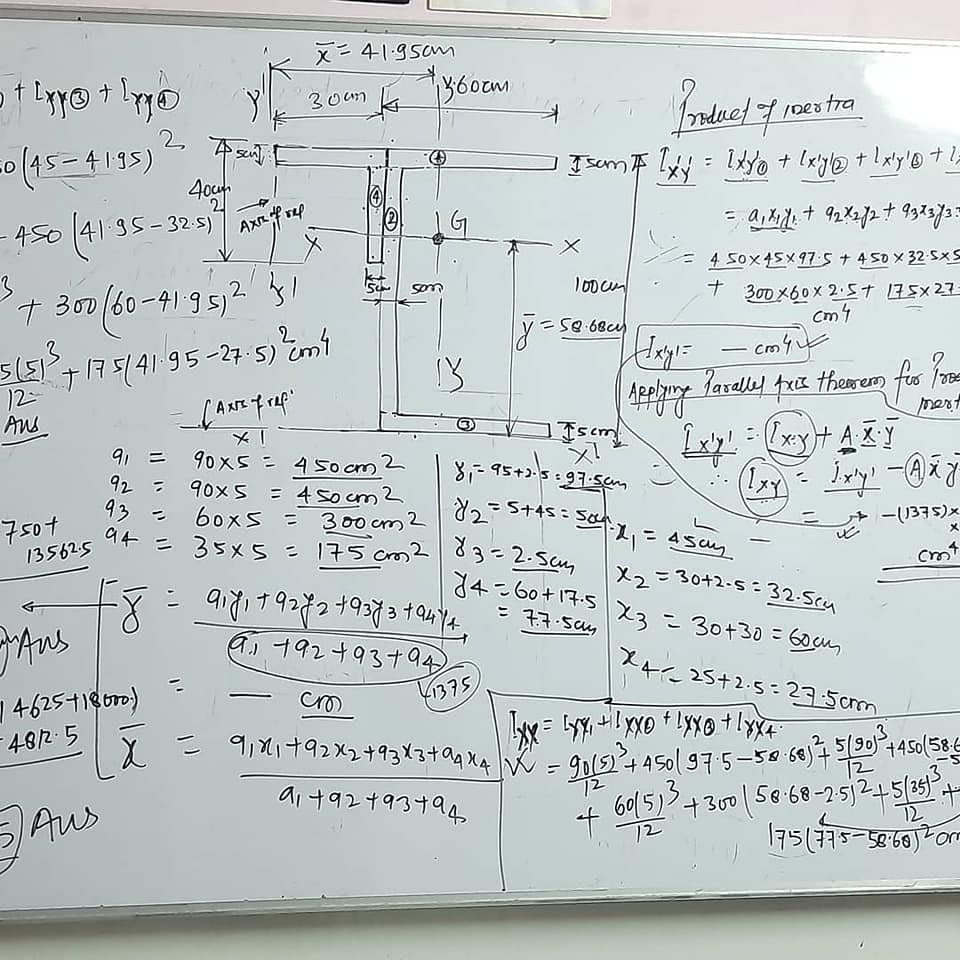 + Ixx③ + Ixx④
(45-41.95)²
450(41.95-32.5)²
+ 300(60-41.95)²
5(5)³/12 + 175(41.95-27.5)² cm⁴
Ans
x̄ = 41.95cm
30cm
60cm
5cm
40cm
5cm
Axis of ref
①
④
②
G
X
X
5cm
5cm
100cm
ȳ = 58.68cm
y
Axis of ref
x'
③
5cm
x'
a1 = 90x5 = 450cm²
a2 = 90x5 = 450cm²
a3 = 60x5 = 300cm²
a4 = 35x5 = 175cm²
750+
13562.5
ȳ = a1y1 + a2y2 + a3y3 + a4y4
a1 + a2 + a3 + a4
1375
= — cm
x̄ = a1x1 + a2x2 + a3x3 + a4x4
a1 + a2 + a3 + a4
Ans
14625+18000)
4812.5
Ans
y1 = 95+2.5 = 97.5cm
y2 = 5+45 = 50cm
y3 = 2.5cm
y4 = 60+17.5
= 77.5cm
x1 = 45cm
x2 = 30+2.5 = 32.5cm
x3 = 30+30 = 60cm
x4 = 25+2.5 = 27.5cm
Product of inertia
Ix'y' = Ix'y'① + Ix'y'② + Ix'y'③ +
= a1x1y1 + a2x2y2 + a3x3y3
= 450x45x97.5 + 450x32.5x5
+ 300x60x2.5 + 175x27
cm⁴
Ix'y' = — cm⁴
Applying Parallel Axis theorem for
Ix'y' = Ixy + A.x̄.ȳ
∴ Ixy = Ix'y' - A x̄ ȳ
= -(1375)x
cm⁴
Ixx = Ixx1 + Ixx② + Ixx③ + Ixx4
= 90(5)³/12 + 450(97.5-58.68)² + 5(90)³/12 + 450(58.6
+ 60(5)³/12 + 300(58.68-2.5)² + 5(35)³/12 +
175(77.5-58.68)² cm